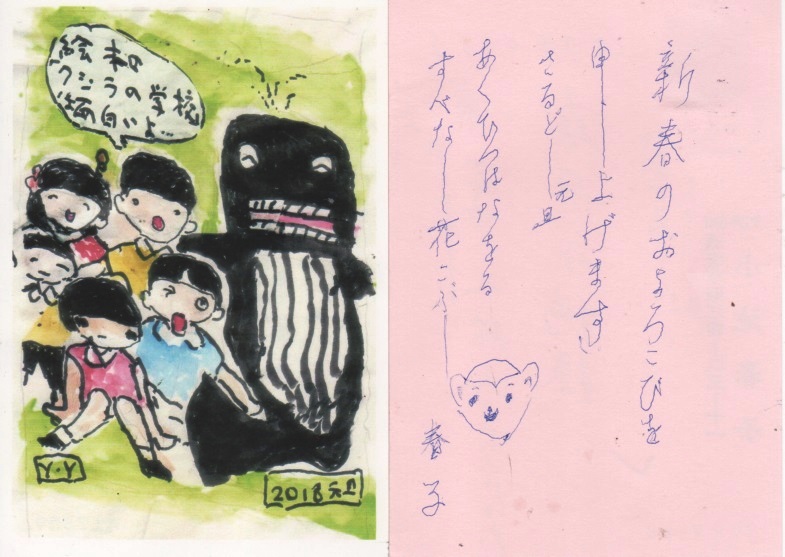 絵本の
クジラの学校
面白いよ…
Y.Y
2018元旦
新春のおよろこびを
申し上げます
さるどし 元旦
あくひつはなをる
すべなし花こぶし
春子